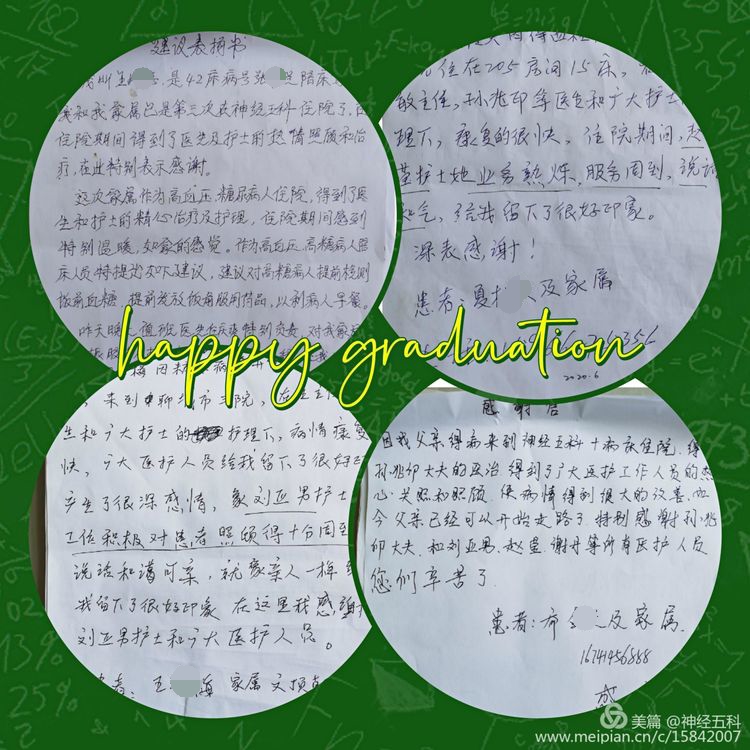 建议表扬书
是42床病号张
我和我家属已是第三次在神经五科住院了,
住院期间得到了医生及护士的热情照顾和治
疗,在此特别表示感谢。
这次家属作为高血压、糖尿病人住院,得到了医
生和护士的精心治疗及护理,住院期间感到
特别温暖,如家的感觉。作为高血压、高糖病人陪
床人员特提出如下建议,建议对高糖病人提前检测
饭前血糖,提前发放饭前服用药品,以利病人早餐。
昨天晚
住在205房间15床,
敬主任,孙兆印等医生和广大护士
理下,康复的很快。住院期间,赵
堇护士她业务熟炼,服务周到,说话
和气,给我留下了很好印象。
深表感谢!
患者:夏 及家属
2020.6
happy graduation
来到聊城市三院,在
生和广大护士的护理下,病情康复
快,广大医护人员给我留下了很好
产生了很深感情,象刘亚男护士
工作积极对患者照顾得十分周到
说话和谐可亲,就象亲人一样
我留下了很好印象 在这里我感谢
刘亚男护士和广大医护人员。
患者:王 家属
感谢信
因我父亲得病来到神经五科十病床住院,得
孙兆印大夫的医治 得到了广大医护工作人员的热
心关照和照顾,使病情得到很大的改善,如
今父亲已经可以开始走路了.特别感谢孙兆
印大夫.和刘亚男.赵堇.谢丹等所有医护人员
您们辛苦了.
患者:乔 及家属.
16741956888
美篇 @神经五科
www.meipian.cn/c/15842007